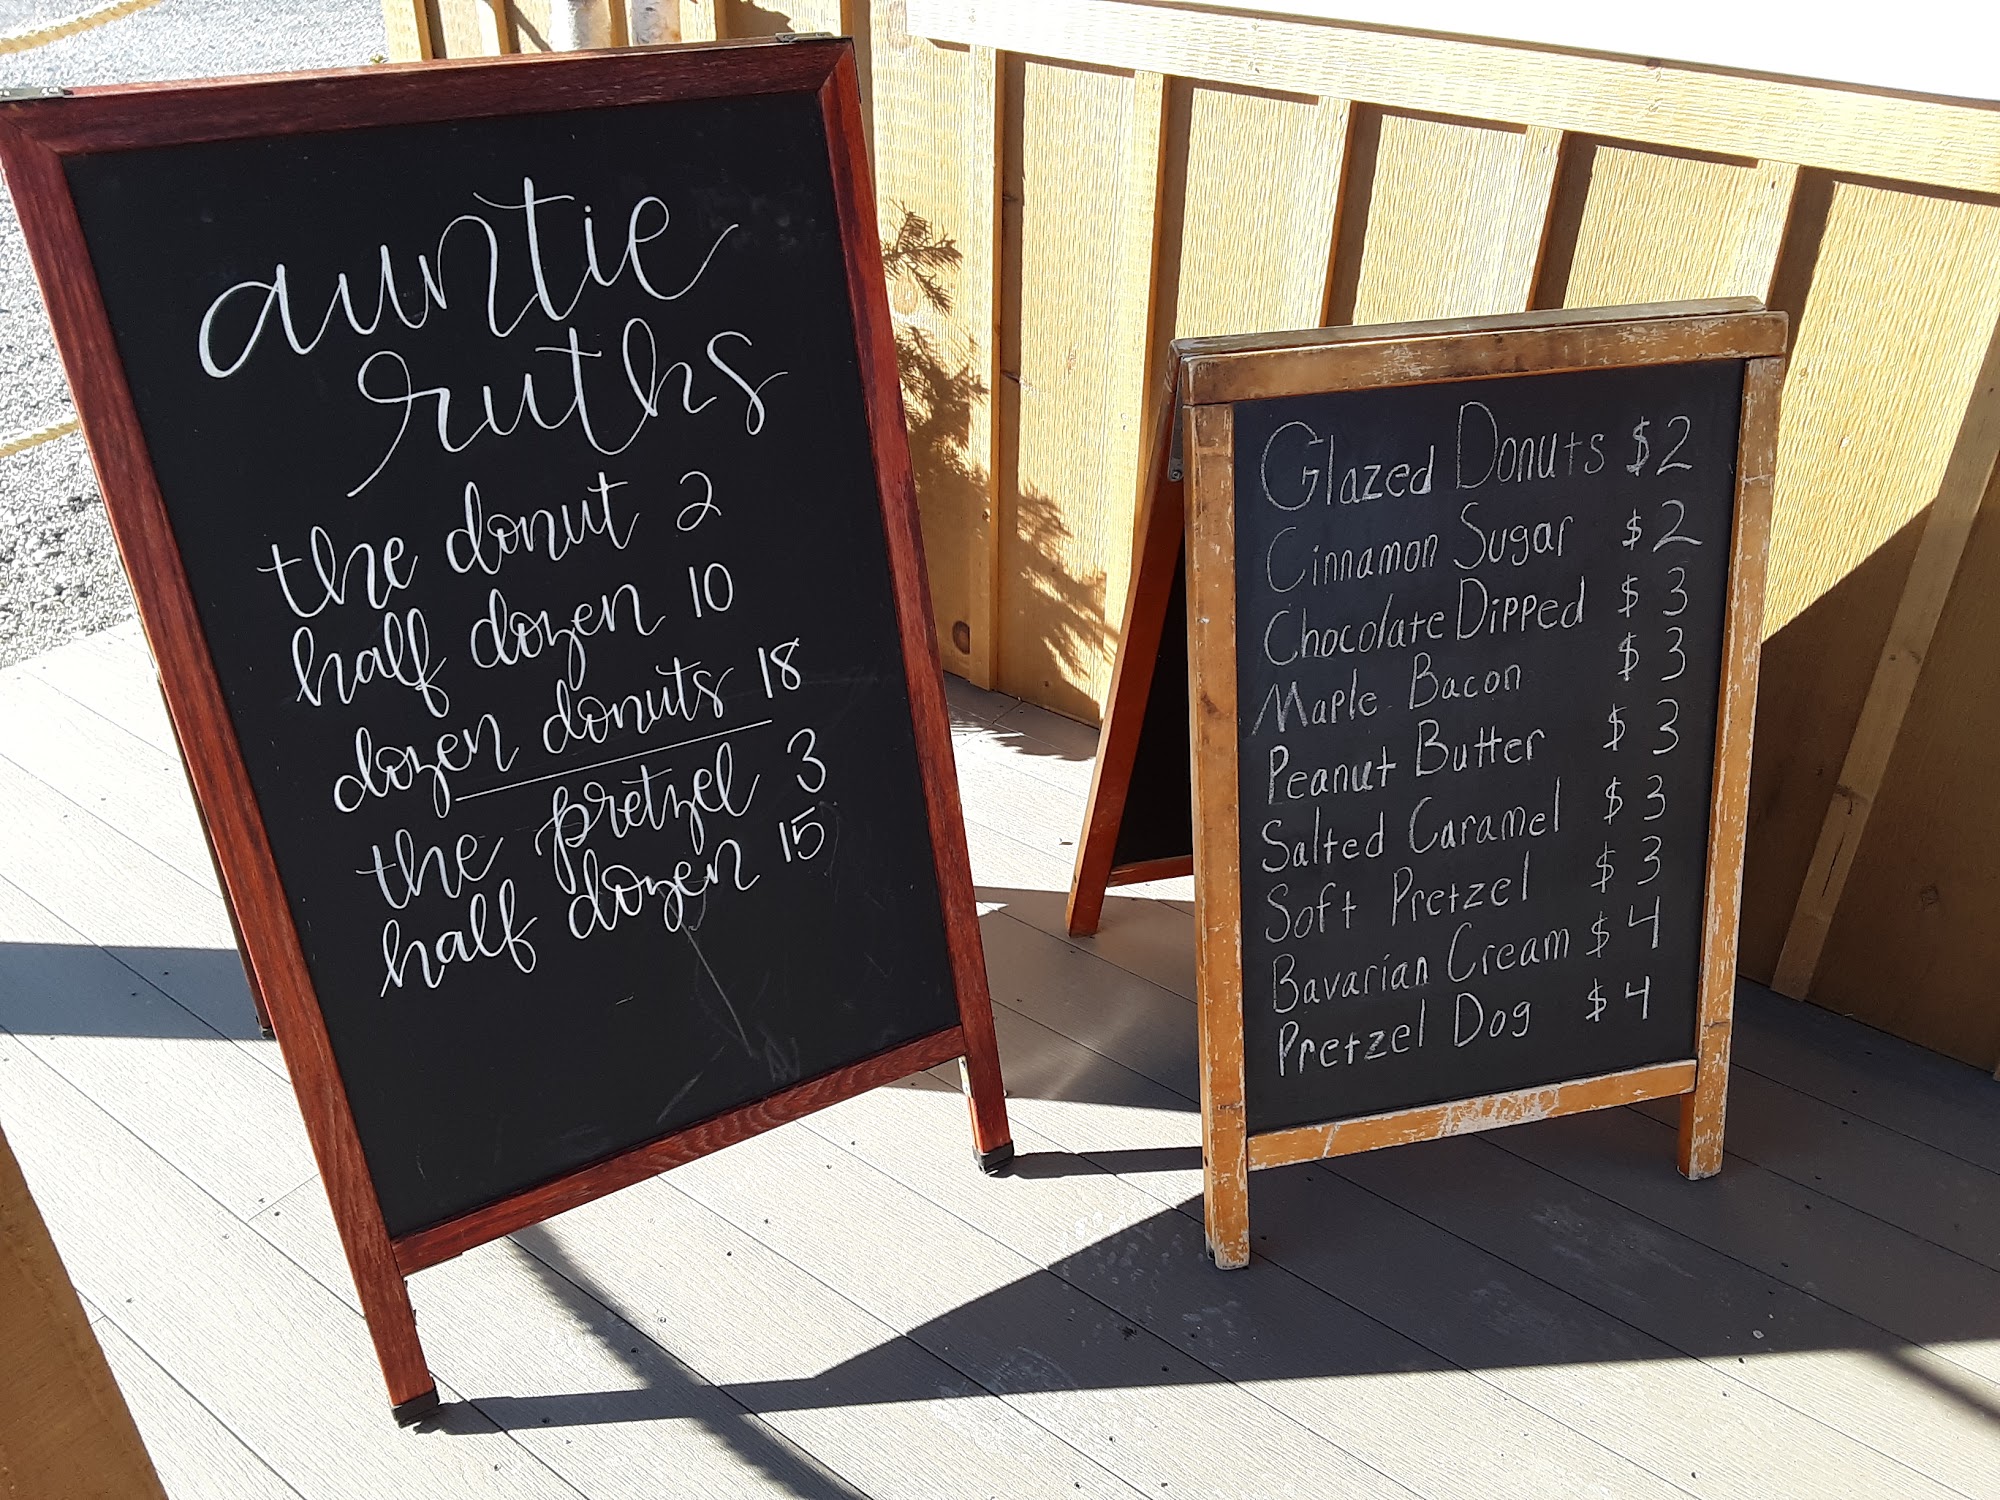 auntie
ruths
the donut 2
half dozen 10
dozen donuts 18
the pretzel 3
half dozen 15
Glazed Donuts $2
Cinnamon Sugar $2
Chocolate Dipped $3
Maple Bacon $3
Peanut Butter $3
Salted Caramel $3
Soft Pretzel $3
Bavarian Cream $4
Pretzel Dog $4